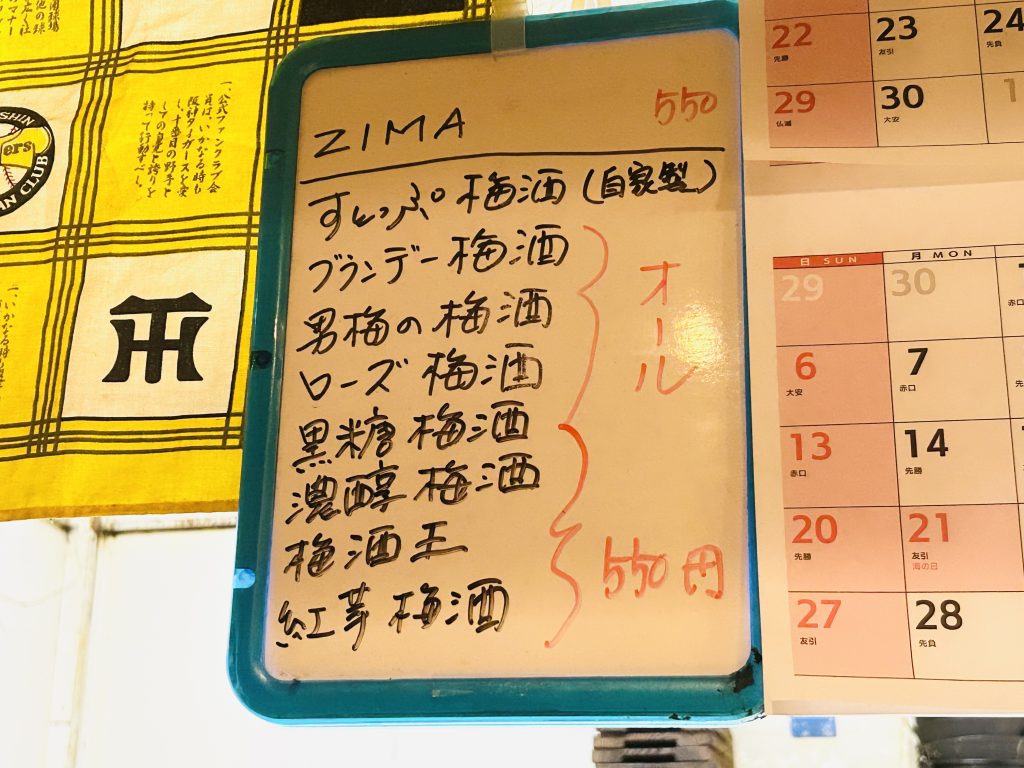 ZIMA 550
すとっぷ 梅酒(自家製)
ブランデー梅酒
男梅の梅酒
ローズ 梅酒
黒糖 梅酒
濃醇 梅酒
梅酒王
紅芋 梅酒
オール
550円
一、公式ファンクラブ会
員は、いかなる時も
阪神タイガースを愛
し、十番目の野手と
しての自覚と誇りを
持って行動すべし。
CLUB
22 23 24
先勝 友引 先負
29 30 1
仏滅 大安
日 SUN 月 MON
29 30
赤口
6 7
大安 赤口
13 14
赤口 先勝
20 21
先勝 友引
海の日
27 28
友引 先負